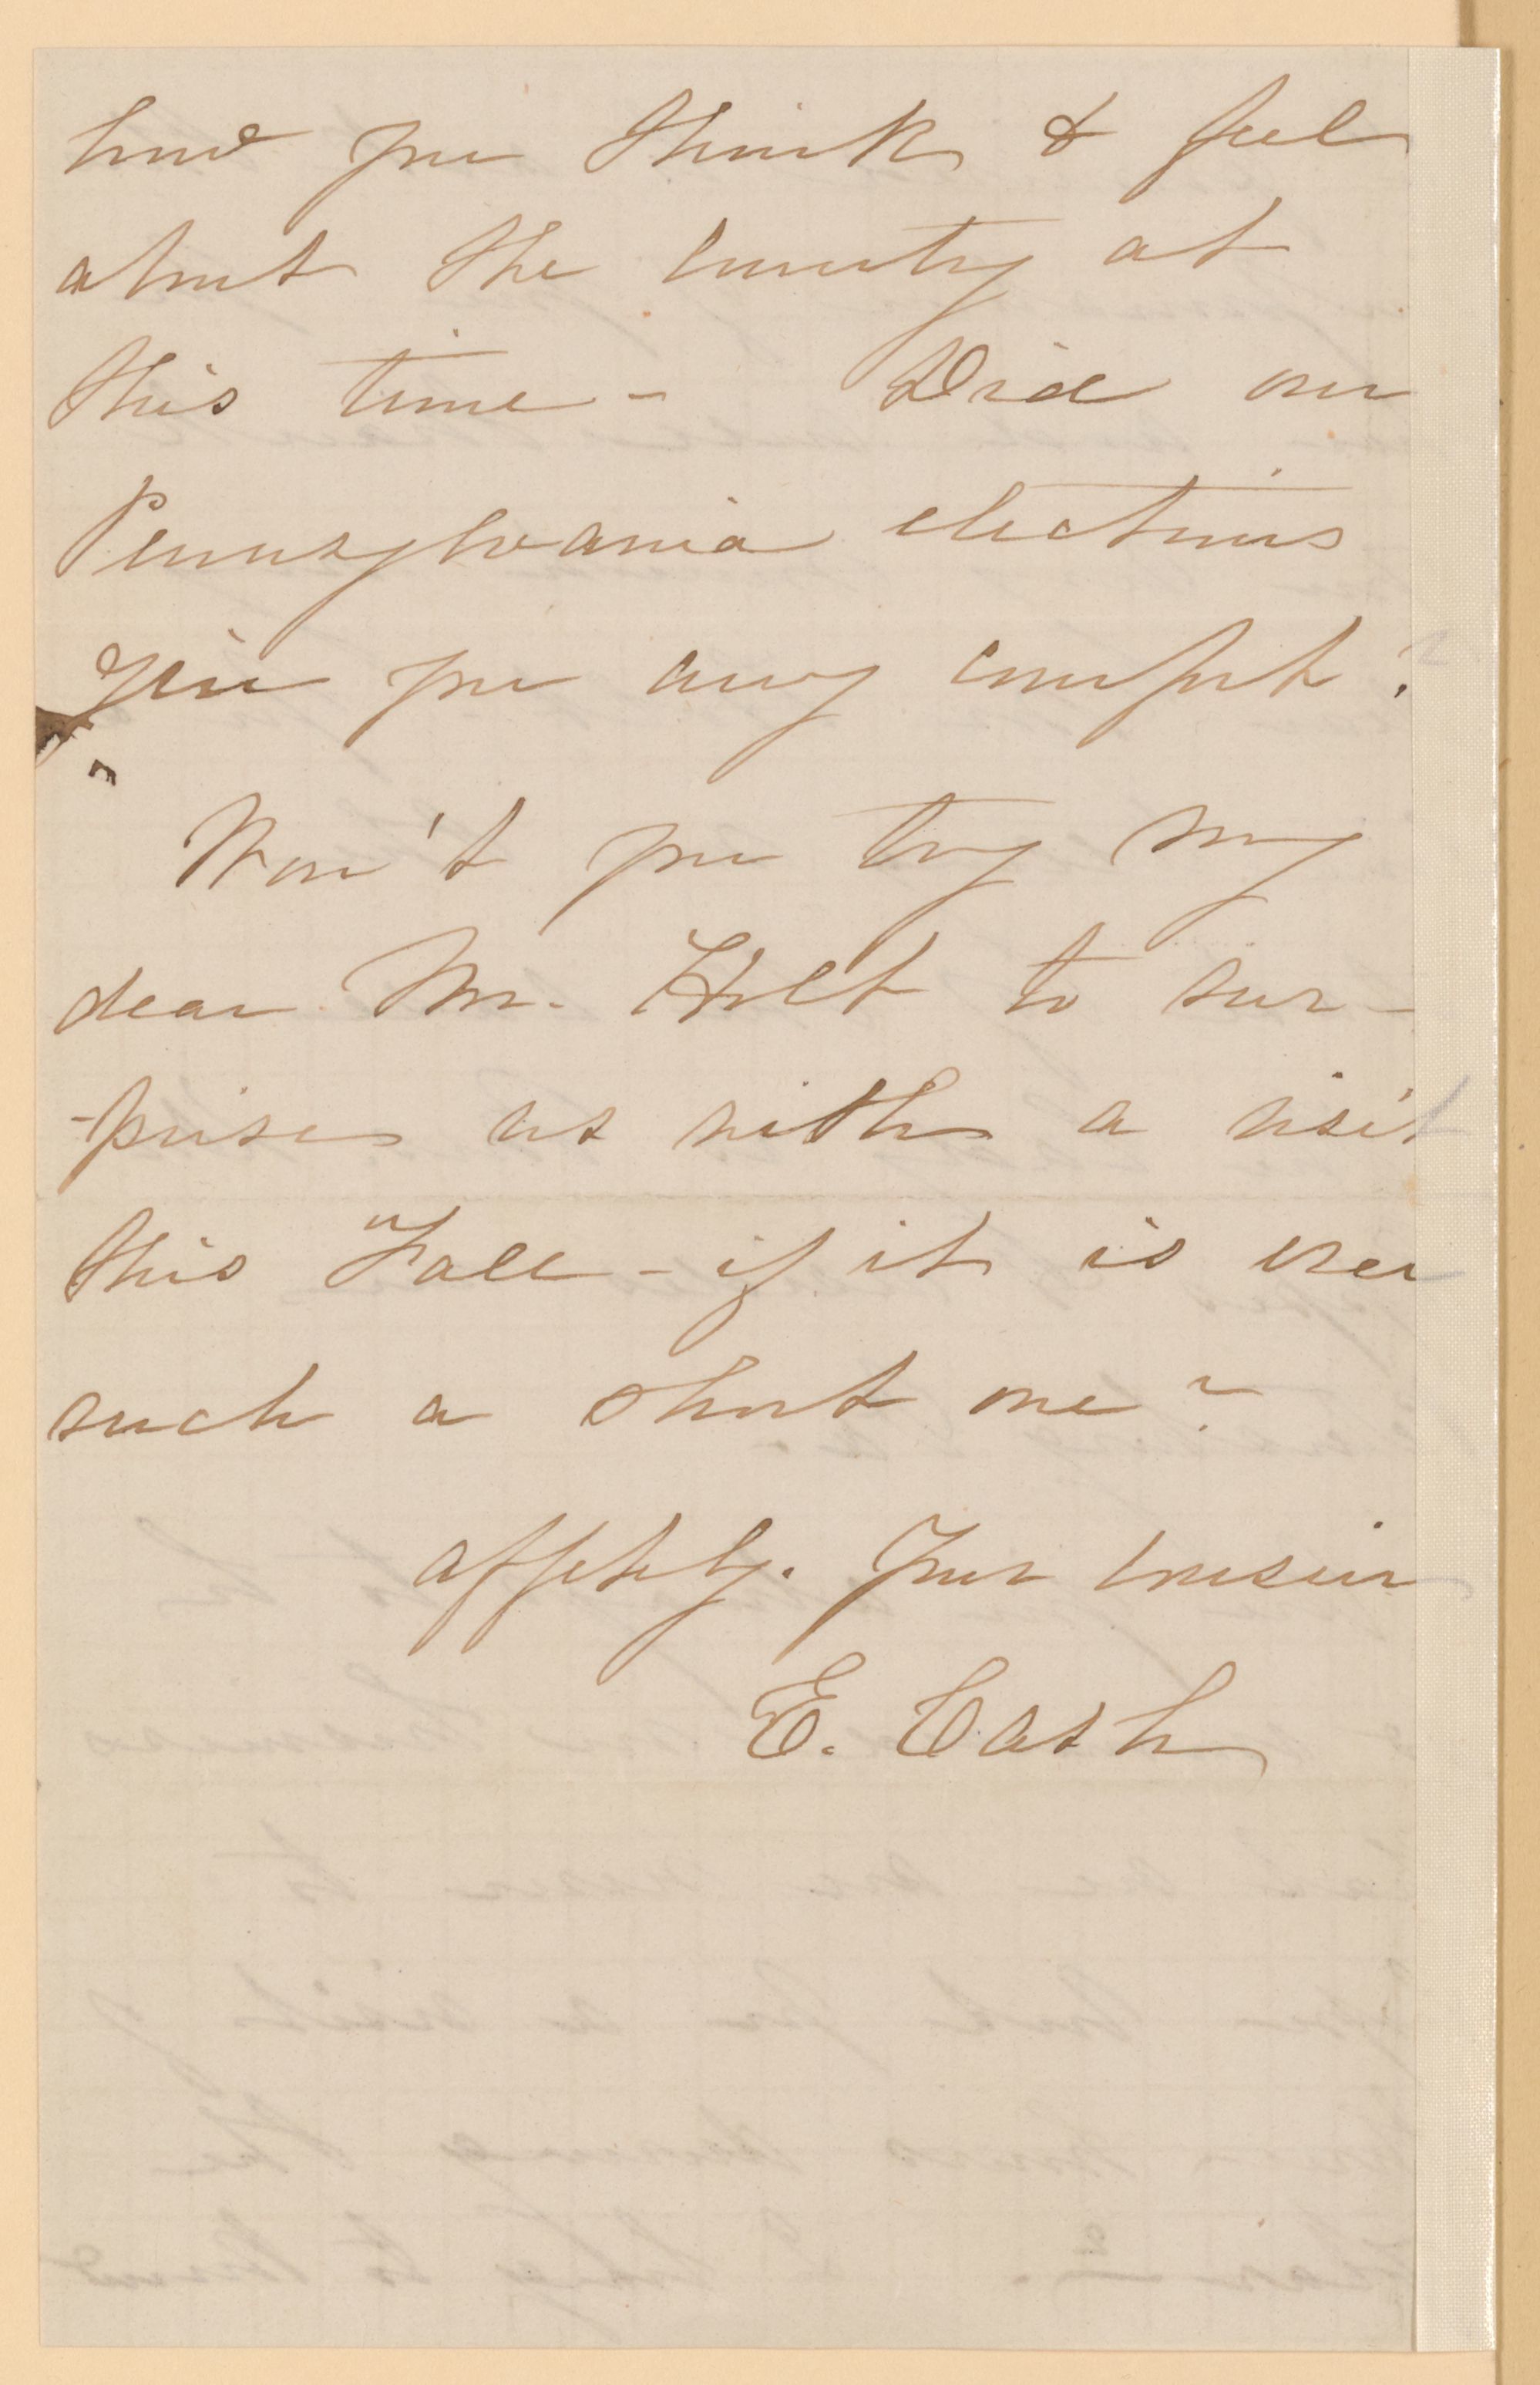 how you think & feel
about the country at
this time - Did our
Pennsylvania elections
give you any comfort?
Won't you try my
dear Mr. Holt to sur-
-prise us with a visit
this Fall - if it is ever
such a short one?
affctly. Your cousin
E. Cash